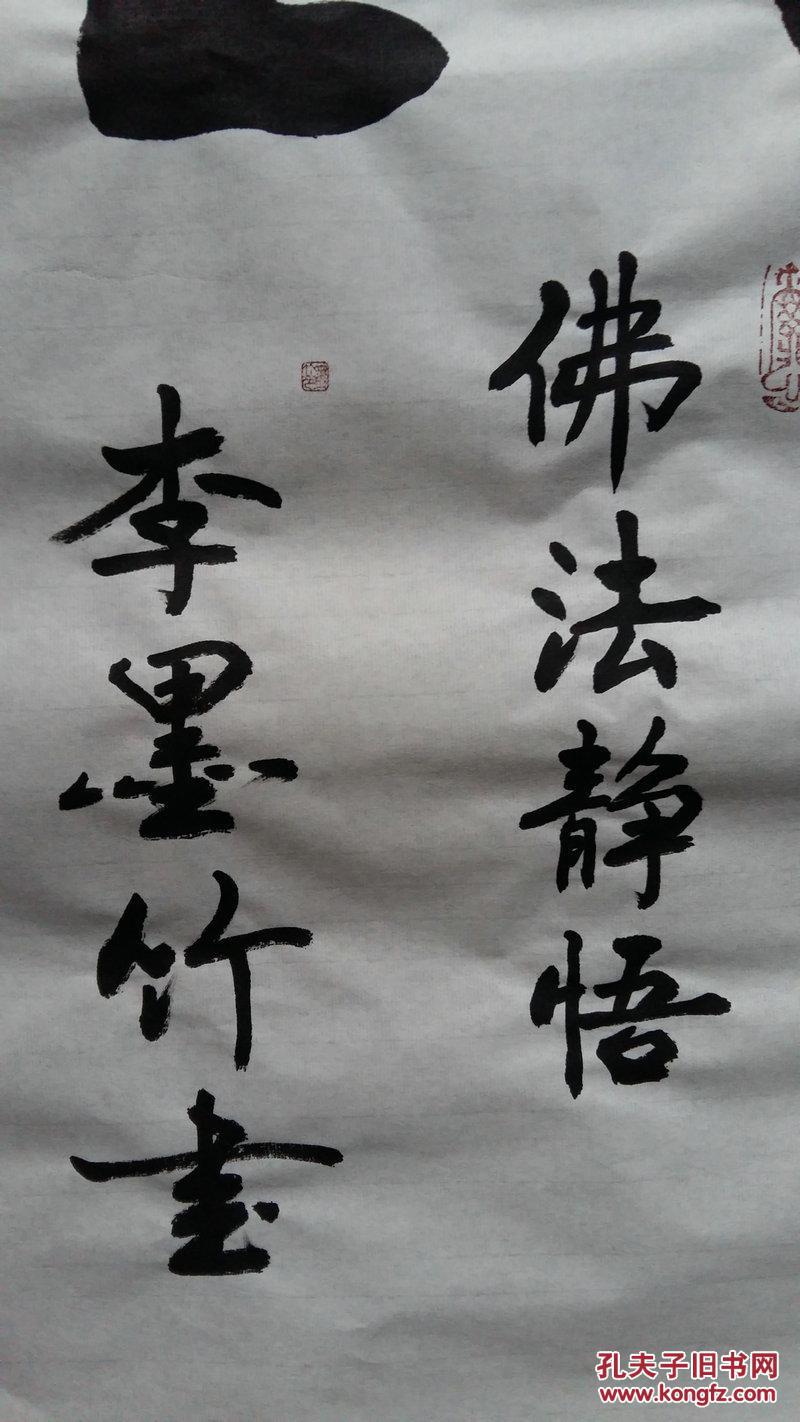 佛法静悟
李墨竹书
孔夫子旧书网
www.kongfz.com